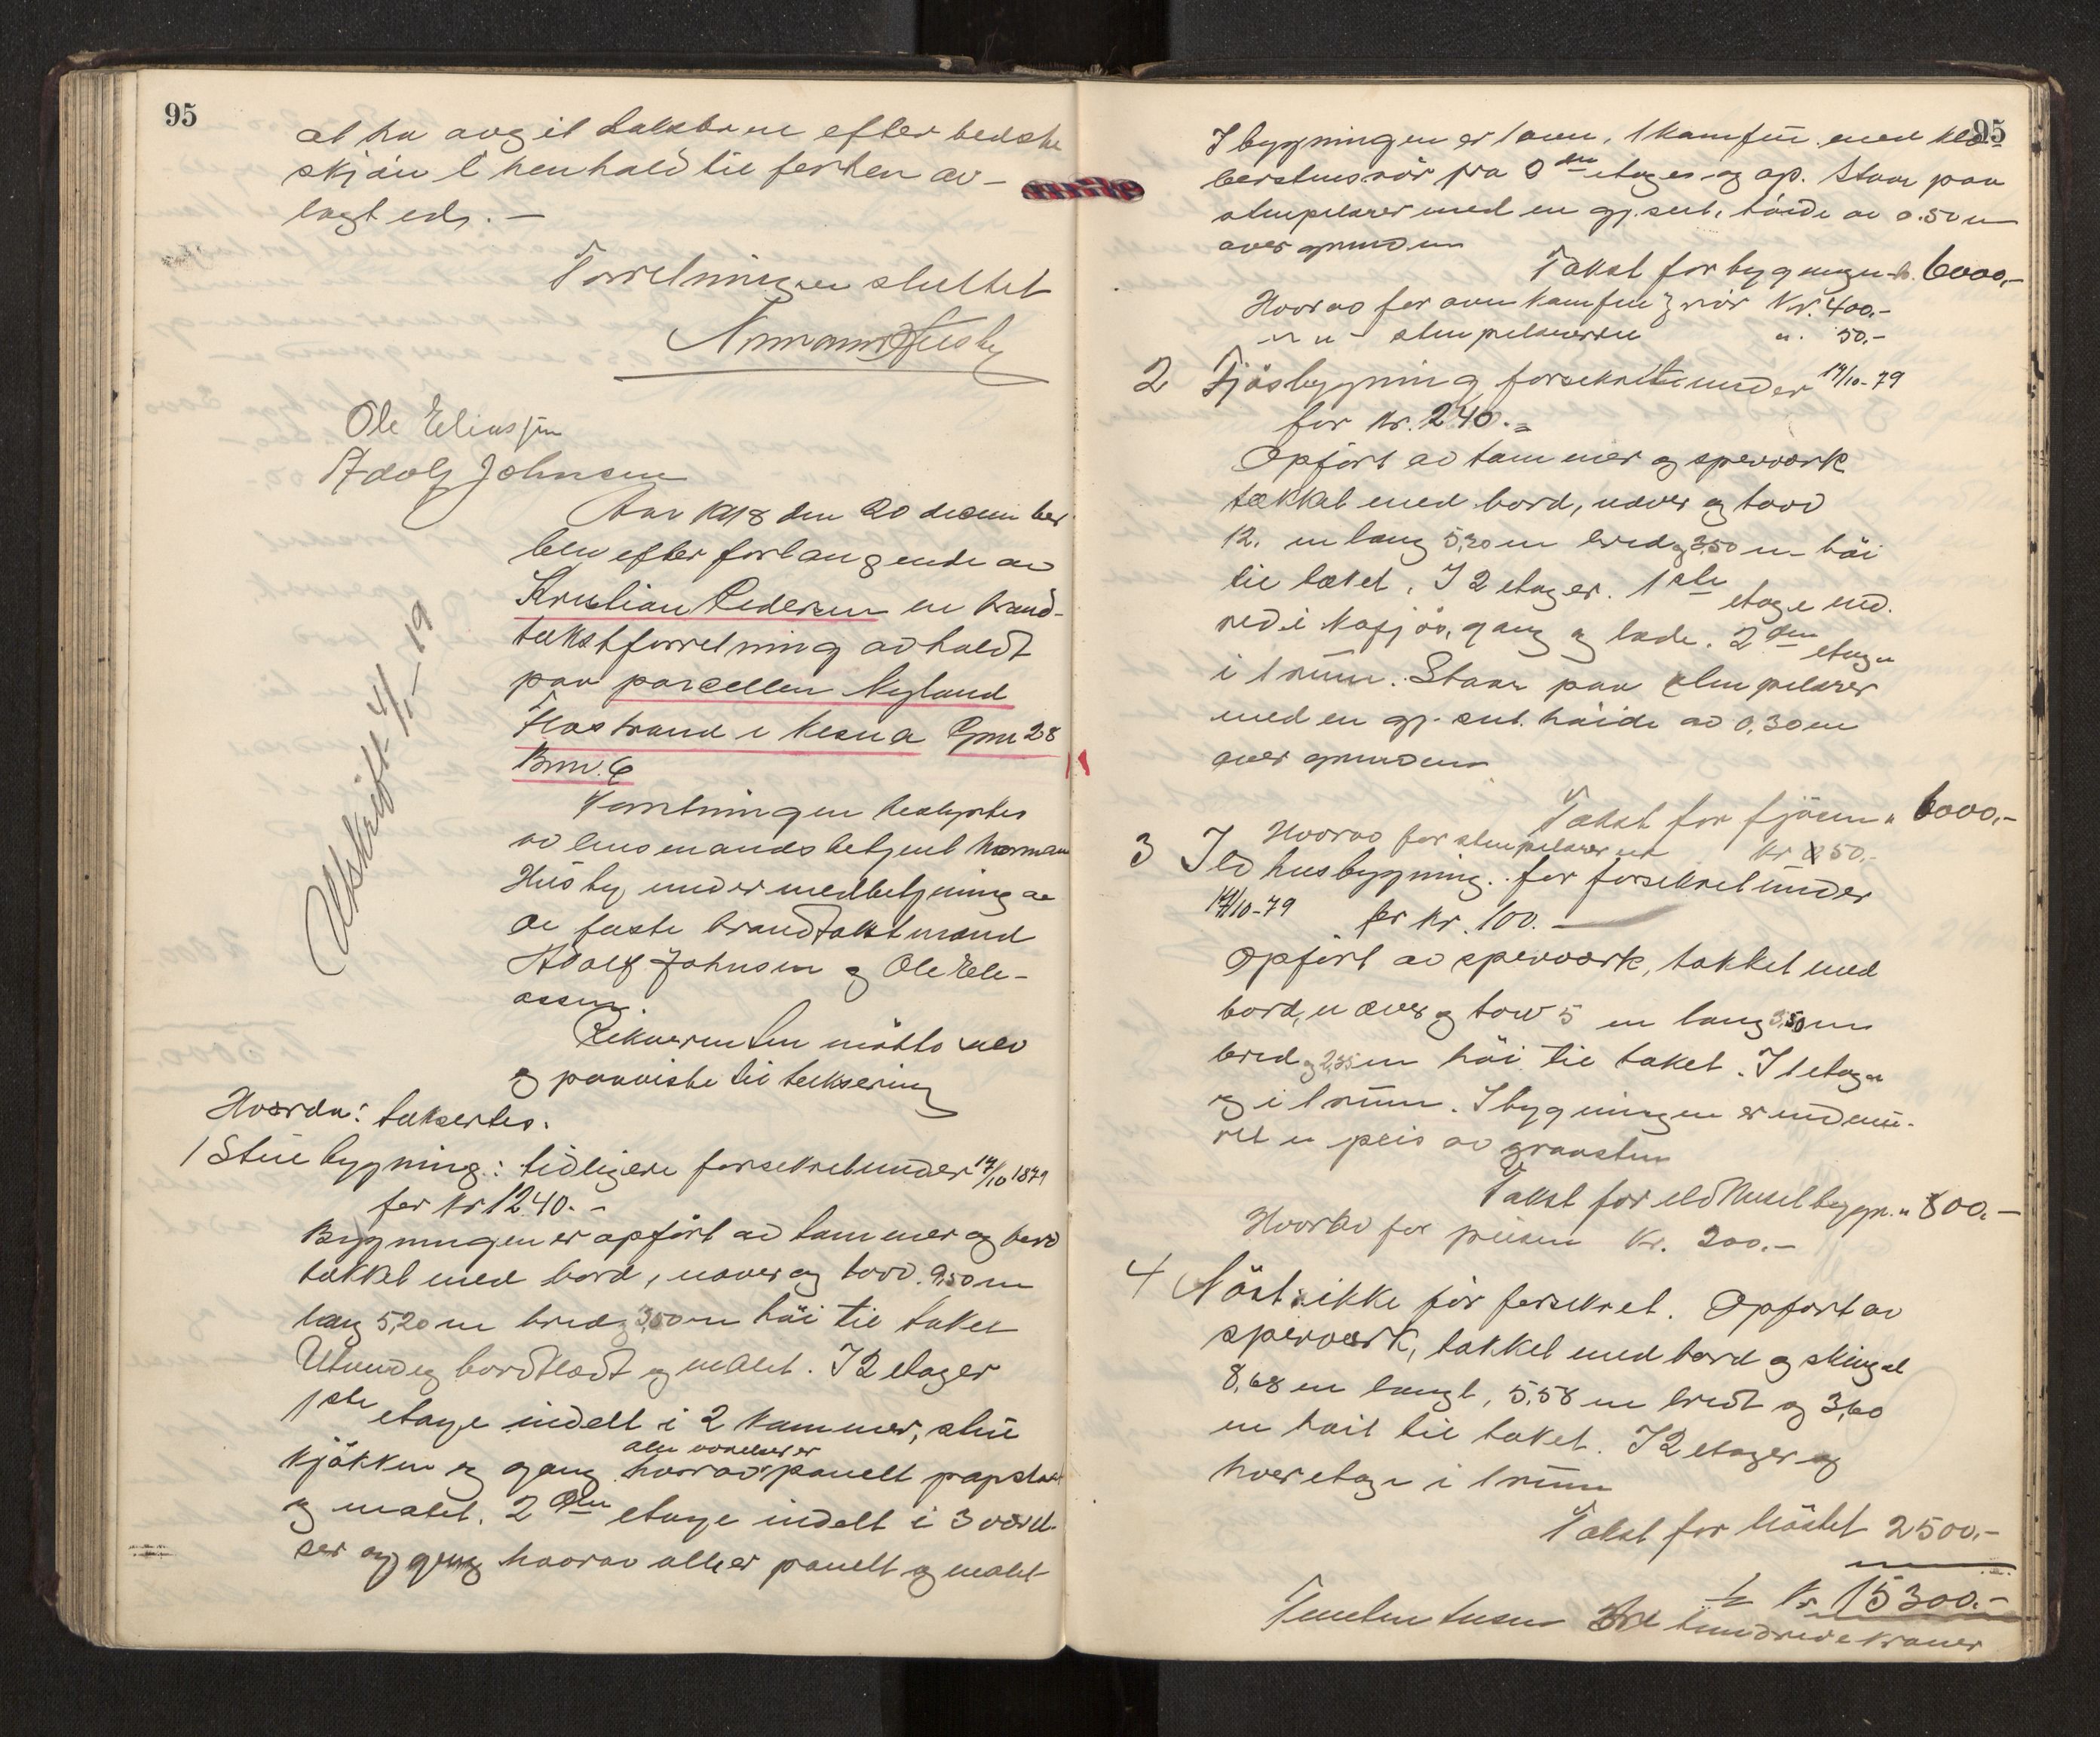 95
at ha avgit taksterne efter bedste
skjön i henhold til forhen av-
lagt ed. -
Forretningen sluttet
Normann Husby
Ole Eliassen
Adolf Johnsen
Utskrift 4/1-19
Aar 1918 den 20 december
blev efter forlangende av
Kristian Pedersen en brand-
takstforretning avholdt
paa parcellen Nyland
Flostrand i Nesna Gnr 28
Bnr. 6
Forretningen bestyrtes
av lensmandsbetjent Normann
Husby under medbetjening av
de faste brandtakstmænd
Adolf Johnsen og Ole Eli-
assen
Rekvirenten mötte selv
og paaviste til taksering
Hvorda: taksertes.
1 Stuebygning: tidligere forsekret under 17/10 1879
for Kr 1240.-
Bygningen er opfört av tømmer og bord
tækket med bord, næver og torv. 9,50 m
lang 5,20 m bred og 3,50 m höi til taket
Utvendig bordklædt og malet. I 2 etager
1ste etage indelt i 2 kammer, stue
kjökken og gang hvorav alle værelser er panelt papstrukket
og malet. 2den etage indelt i 3 værel-
ser og gang hvorav alle er panelt og malet
95
I bygningen er 1 ovn, 1 komfur med kle-
berstensrör fra 2den etages og op. Staar paa
stenpilarer med en gj.snt. höide av 0.50 m
over grunden
Takst for bygningen kr. 6000,-
Hvorav for ovn komfur og rör Kr. 400.-
" " - stenpilarerne " 50,-
2 Fjösbygning forsekret under 17/10-79
for kr. 240.-
Opfört av tømmer og sperværk
tækket med bord, næver og torv
12. m lang 5,20 m bred og 3,50 m höi
til taket. I 2 etager. 1ste etage ind-
red i kofjös, gang og lade. 2den etage
i 1 rum. Staar paa stenpilarer
med en gj.snt. höide av 0,30 m
over grunden
Takst for fjösen " 6000,-
Hvorav for stenpilarerne kr 50,-
3 Ildhusbygning. för forsekret under
17/10-79 for kr. 100. -
Opfört av sperværk, takket med
bord, næver og torv 5 m lang 3,50 m
bred og 2,35 m höi til taket. I 1 etage
og i 1 rum. I bygningen er indmu-
ret en peis av graasten
Takst for ildhusetbygn. " 800.-
Hvorav for peisen Kr. 200.-
4 Nöst: ikke för forsekret. Opfört av
sperværk, takket med bord og skingel
8,68 m langt, 5,58 m bredt og 3,60
m höit til taket. I 2 etager og
hver etage i 1 rum
Takst for Nöstet 2500,-
Kr 15300.-
Femten tusen tre hundrede kroner